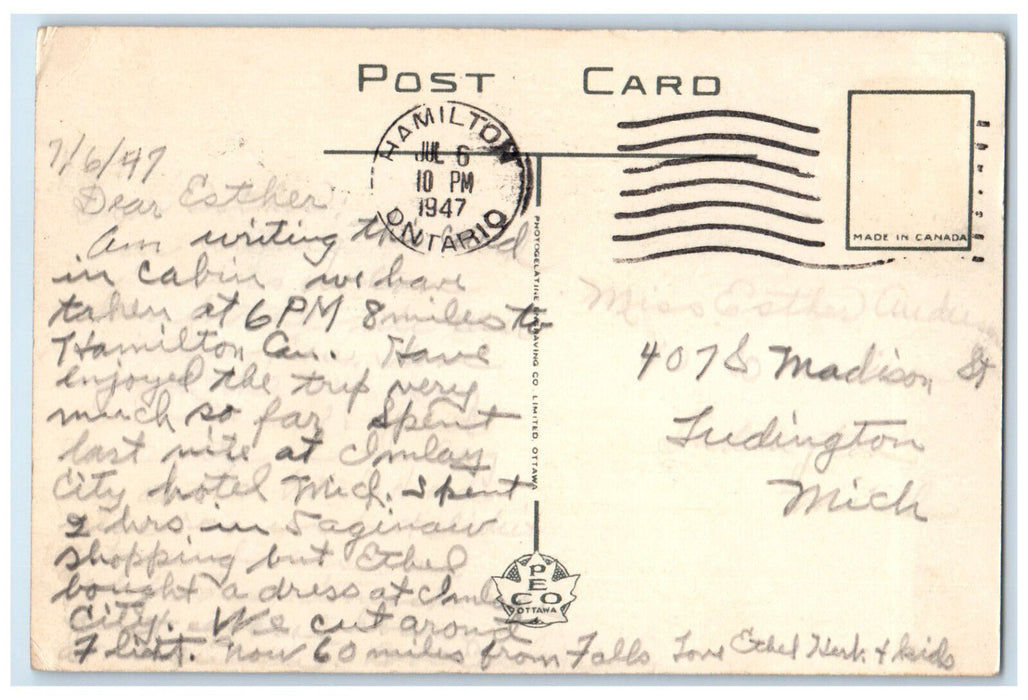 POST CARD
HAMILTON
JUL 6
10 PM
1947
ONTARIO
MADE IN CANADA
7/6/47
Dear Esther
Am writing this card
in cabin we have
taken at 6 PM 8 miles to
Hamilton Can. Have
enjoyed the trip very
much so far Spent
last nite at Imlay
City hotel Mich. Spent
2 hrs in Saginaw
shopping but Ethel
bought a dress at Imlay
City. We cut around
Flint. Now 60 miles from Falls Love Ethel Herb + kids
PHOTOGELATINE ENGRAVING CO. LIMITED, OTTAWA
PECO
OTTAWA
Miss Esther
407 S Madison St
Ludington
Mich